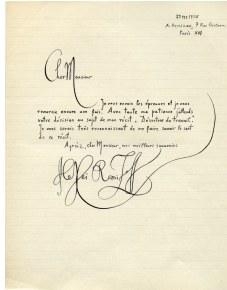 A. Remizov, 7 Rue Boileau
Paris XVI
Cher Monsieur
Je vous envoie les épreuves et je vous
remercie encore une fois. Avec toute ma patience j'attends
votre décision au sujet de mon récit.
Je vous serais très reconnaissant de me faire savoir le sort
de ce récit.
Agréez, cher Monsieur, mes meilleurs souvenirs
Alexei Remizoff